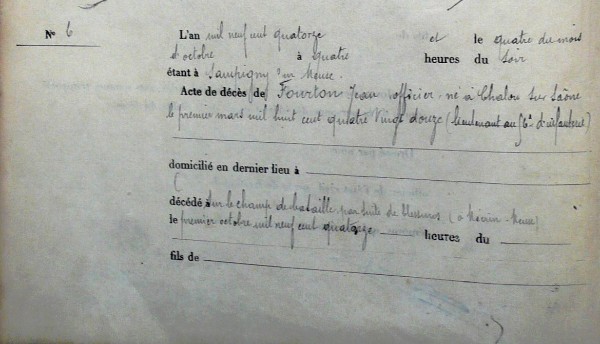 N° 6
L'an mil neuf cent quatorze et le quatre du mois
d'octobre à quatre heures du soir
étant à Sampigny en Meuse.
Acte de décès de Fourton Jean officier né à Chalon sur Saône
le premier mars mil huit cent quatre vingt douze (lieutenant au 56e d'infanterie)
domicilié en dernier lieu à
décédé à sur le champ de bataille, par suite de blessures (à Mécrin-Meuse)
le premier octobre mil neuf cent quatorze heures du
fils de